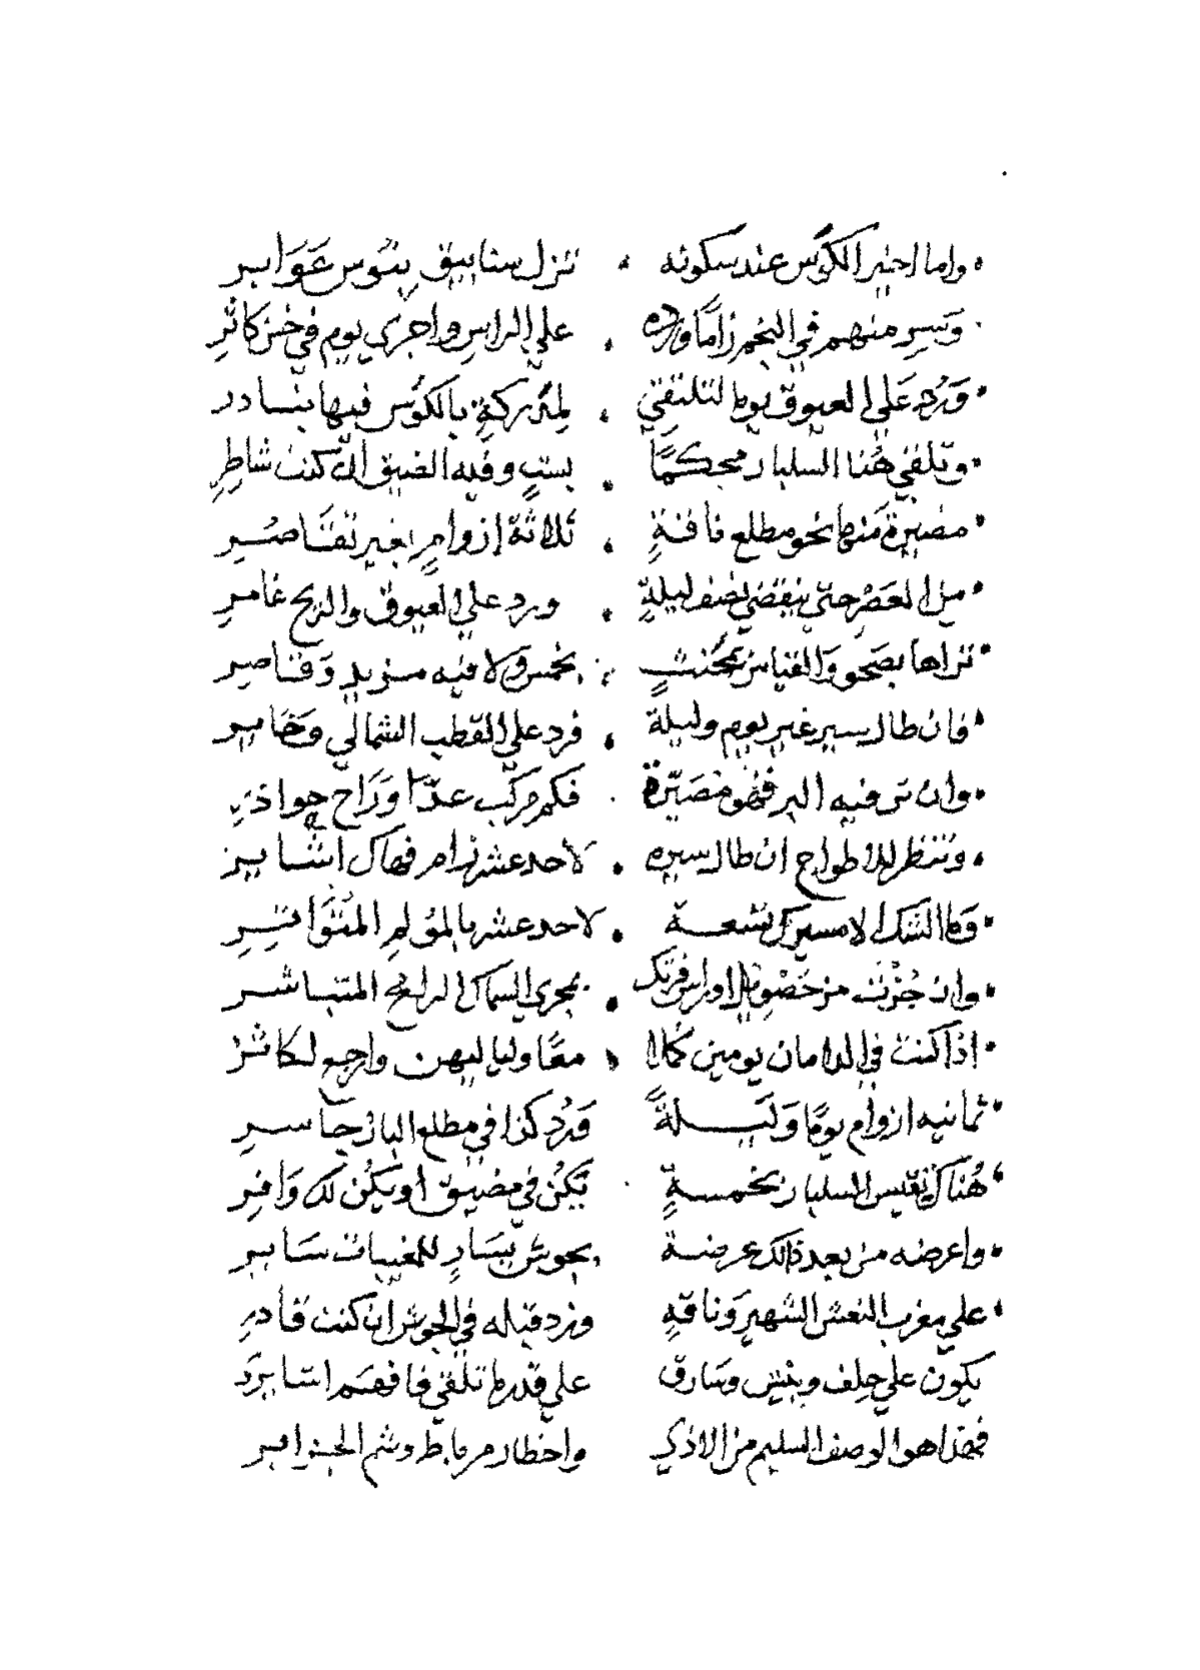 واما اخير الكوس عند سكونه تنزل سنابيق بتوس عوابر
وسير منهم في النجم زاما ورده علي الراس واجري يوم في خن كاثر
ورد علي العيوق يوما لتلتقي لمتركة بالكوس فيها بنادر
وتلقي هنا السلبار محكما بست وفيه الضيق ان كنت شاطر
مصيرة منها نحو مطلع ناقة ثلاثة ازوام بغير تقاصر
من العصر حتي ينقضي نصف ليلة ورد علي العيوق والريح غامر
تراها بصحو والقياس بخمس ولا فيه مزيد وقاصر
فان طال سير غير يوم وليلة فرد علي القطب الشمالي وخابر
وان تر فيه البر فهو مصيرة فكم مركب عدا وراح جواذر
وتنظر للاطواح ان طال سيره لاحد عشر زام فهاك اشاير
وما الشك الا مسير تسعة لاحد عشر بالمولم المتواتر
وان جزت من او راس فرتك مجري السماك الرامح المتباشر
اذا كنت في الدامان يومين كملا معا ولياليهن وارجع لكاثر
ثمانيه ازوام يوما وليلة ورد كذا في مطلع البار جاسر
هناك تقيس السلبار بخمسة تكن في مضيق او يكن لك وافر
واعرضه من بعد ذالك عرضة بحوش يسار للمغيبات ساير
علي مغرب النعش الشهير وناقة ورد قبله في الجوش ان كنت قادر
يكون علي حلف وبنتين وسارق علي قدر ما تلقي فافهم اشايرد
فهذا هو الوصف السليم من الاذي واخطار مرباط وشم الجزاير